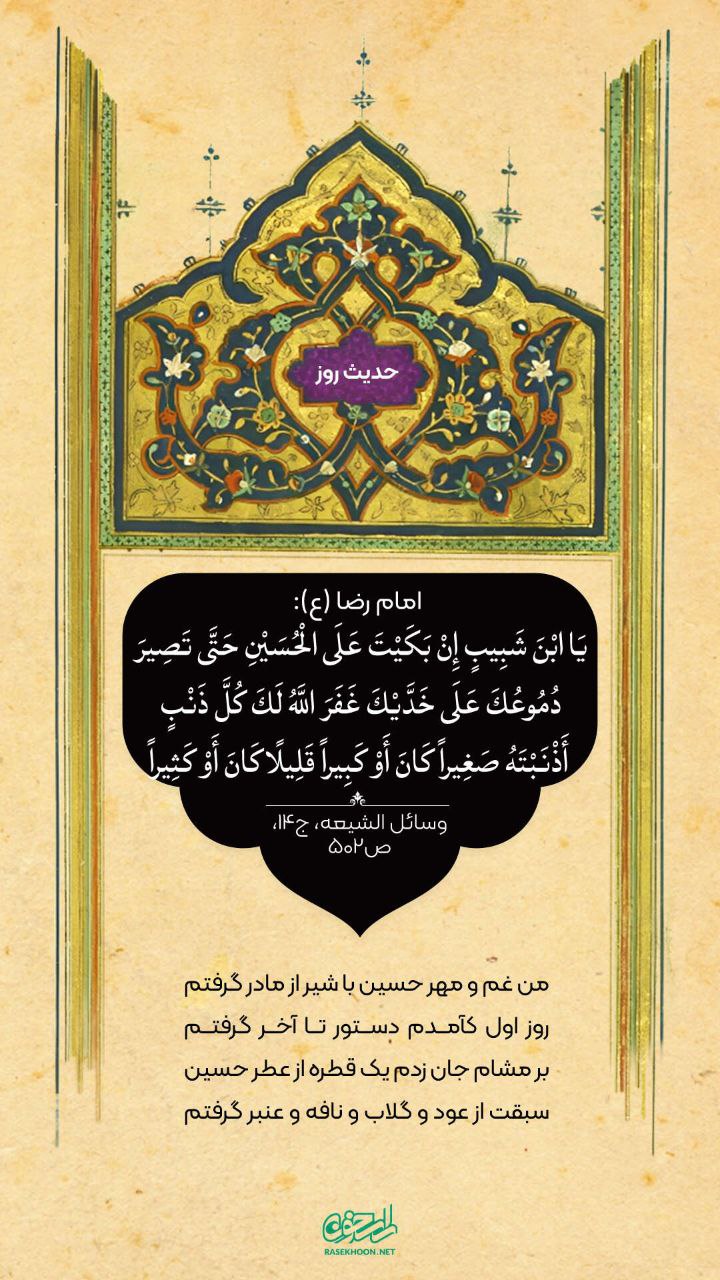 حدیث روز
امام رضا (ع):
يَا ابْنَ شَبِيبٍ إِنْ بَكَيْتَ عَلَى الْحُسَيْنِ حَتَّى تَصِيرَ
دُمُوعُكَ عَلَى خَدَّيْكَ غَفَرَ اللَّهُ لَكَ كُلَّ ذَنْبٍ
أَذْنَبْتَهُ صَغِيراً كَانَ أَوْ كَبِيراً قَلِيلًا كَانَ أَوْ كَثِيراً
وسائل الشیعه، ج۱۴،
ص۵۰۲
من غم و مهر حسین با شیر از مادر گرفتم
روز اول کآمدم دستور تا آخر گرفتم
بر مشام جان زدم یک قطره از عطر حسین
سبقت از عود و گلاب و نافه و عنبر گرفتم
راسخون
RASEKHOON.NET